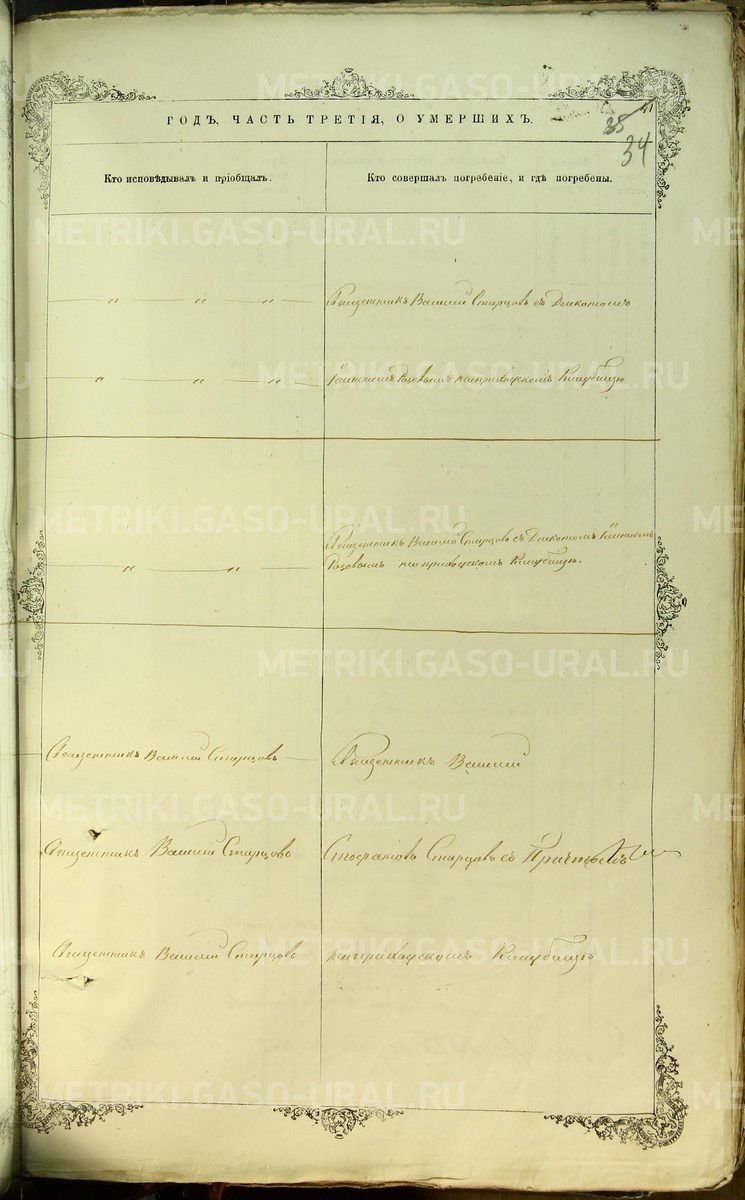 ГОДЪ, ЧАСТЬ ТРЕТІЯ, О УМЕРШИХЪ.
35
34
Кто исповѣдывалъ и пріобщалъ.
Кто совершалъ погребеніе, и гдѣ погребены.
— „ — „ — „ —
Священникъ Василій Старцовъ съ Дьякономъ
— „ — „ — „ —
Розовымъ на приходскомъ Кладбищѣ
— „ — „ —
Священникъ Василій Старцовъ съ Дьякономъ
Розовымъ на приходскомъ Кладбищѣ.
Священникъ Василій Старцовъ —
Священникъ Василій
Священникъ Василій Старцовъ
Старцовъ съ Причтомъ
Священникъ Василій Старцовъ
на приходскомъ Кладбищѣ
METRIKI.GASO-URAL.RU